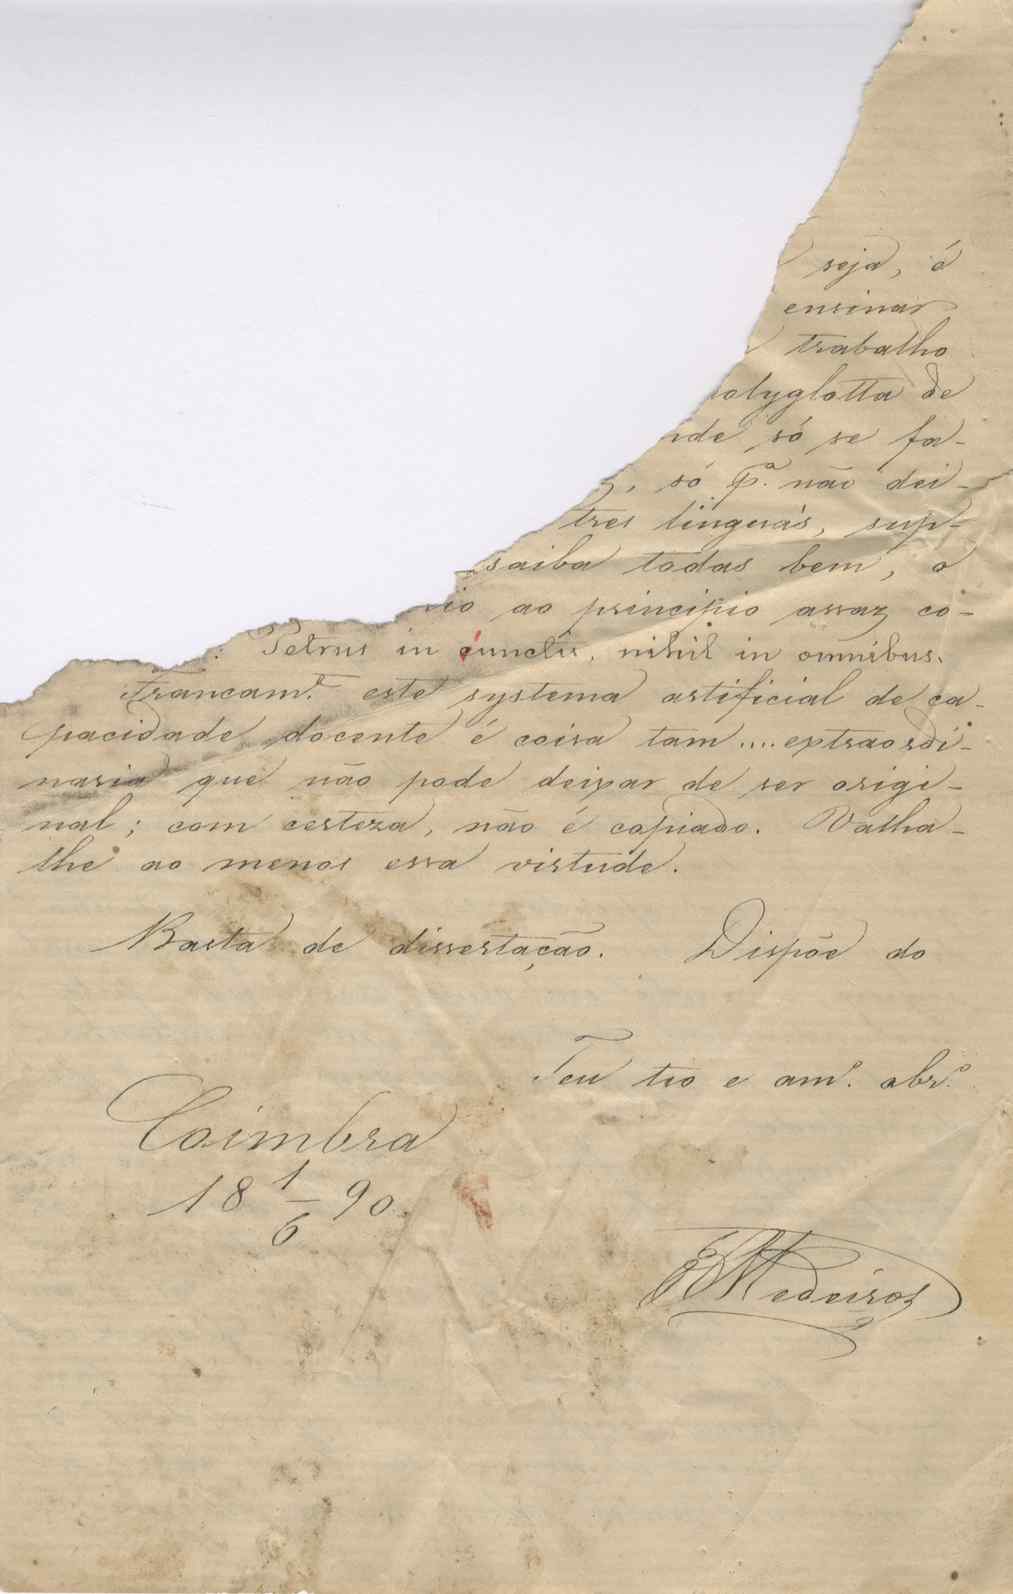 seja, é
ensinar
trabalho
olyglotta de
nde só se fa-
, só q.ᵉ não dei-
tres linguas, sup-
saiba todas bem, o
io ao principio assaz co-
: Petrus in cunctis, nihil in omnibus.
Francam.ᵉ este systema artificial de ca-
pacidade docente é coisa tam .... extraordi-
naria que não pode deixar de ser origi-
nal; com certeza, não é copiado. Valha-
lhe ao menos essa virtude.
Basta de dissertação. Dispõe do
Teu tio e am.º obr.º
Coimbra
18 1/6 90.
Medeiros